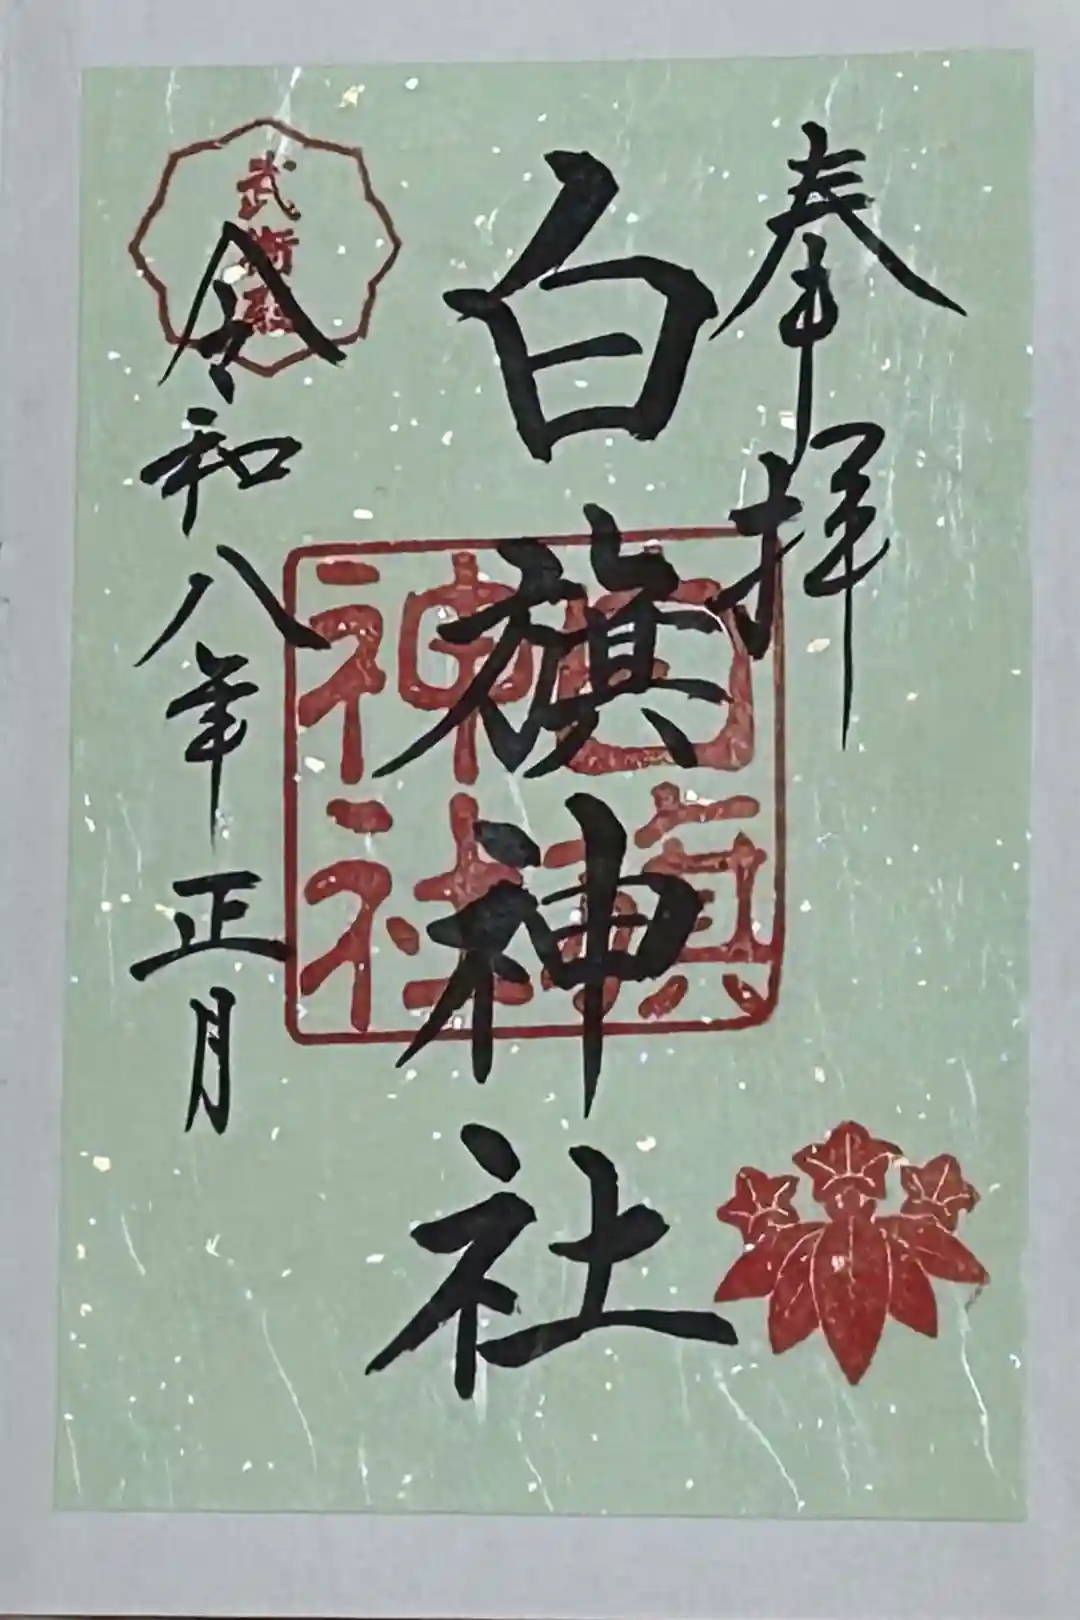 奉拝
白旗神社
白旗
神社
令和八年正月
武衛殿